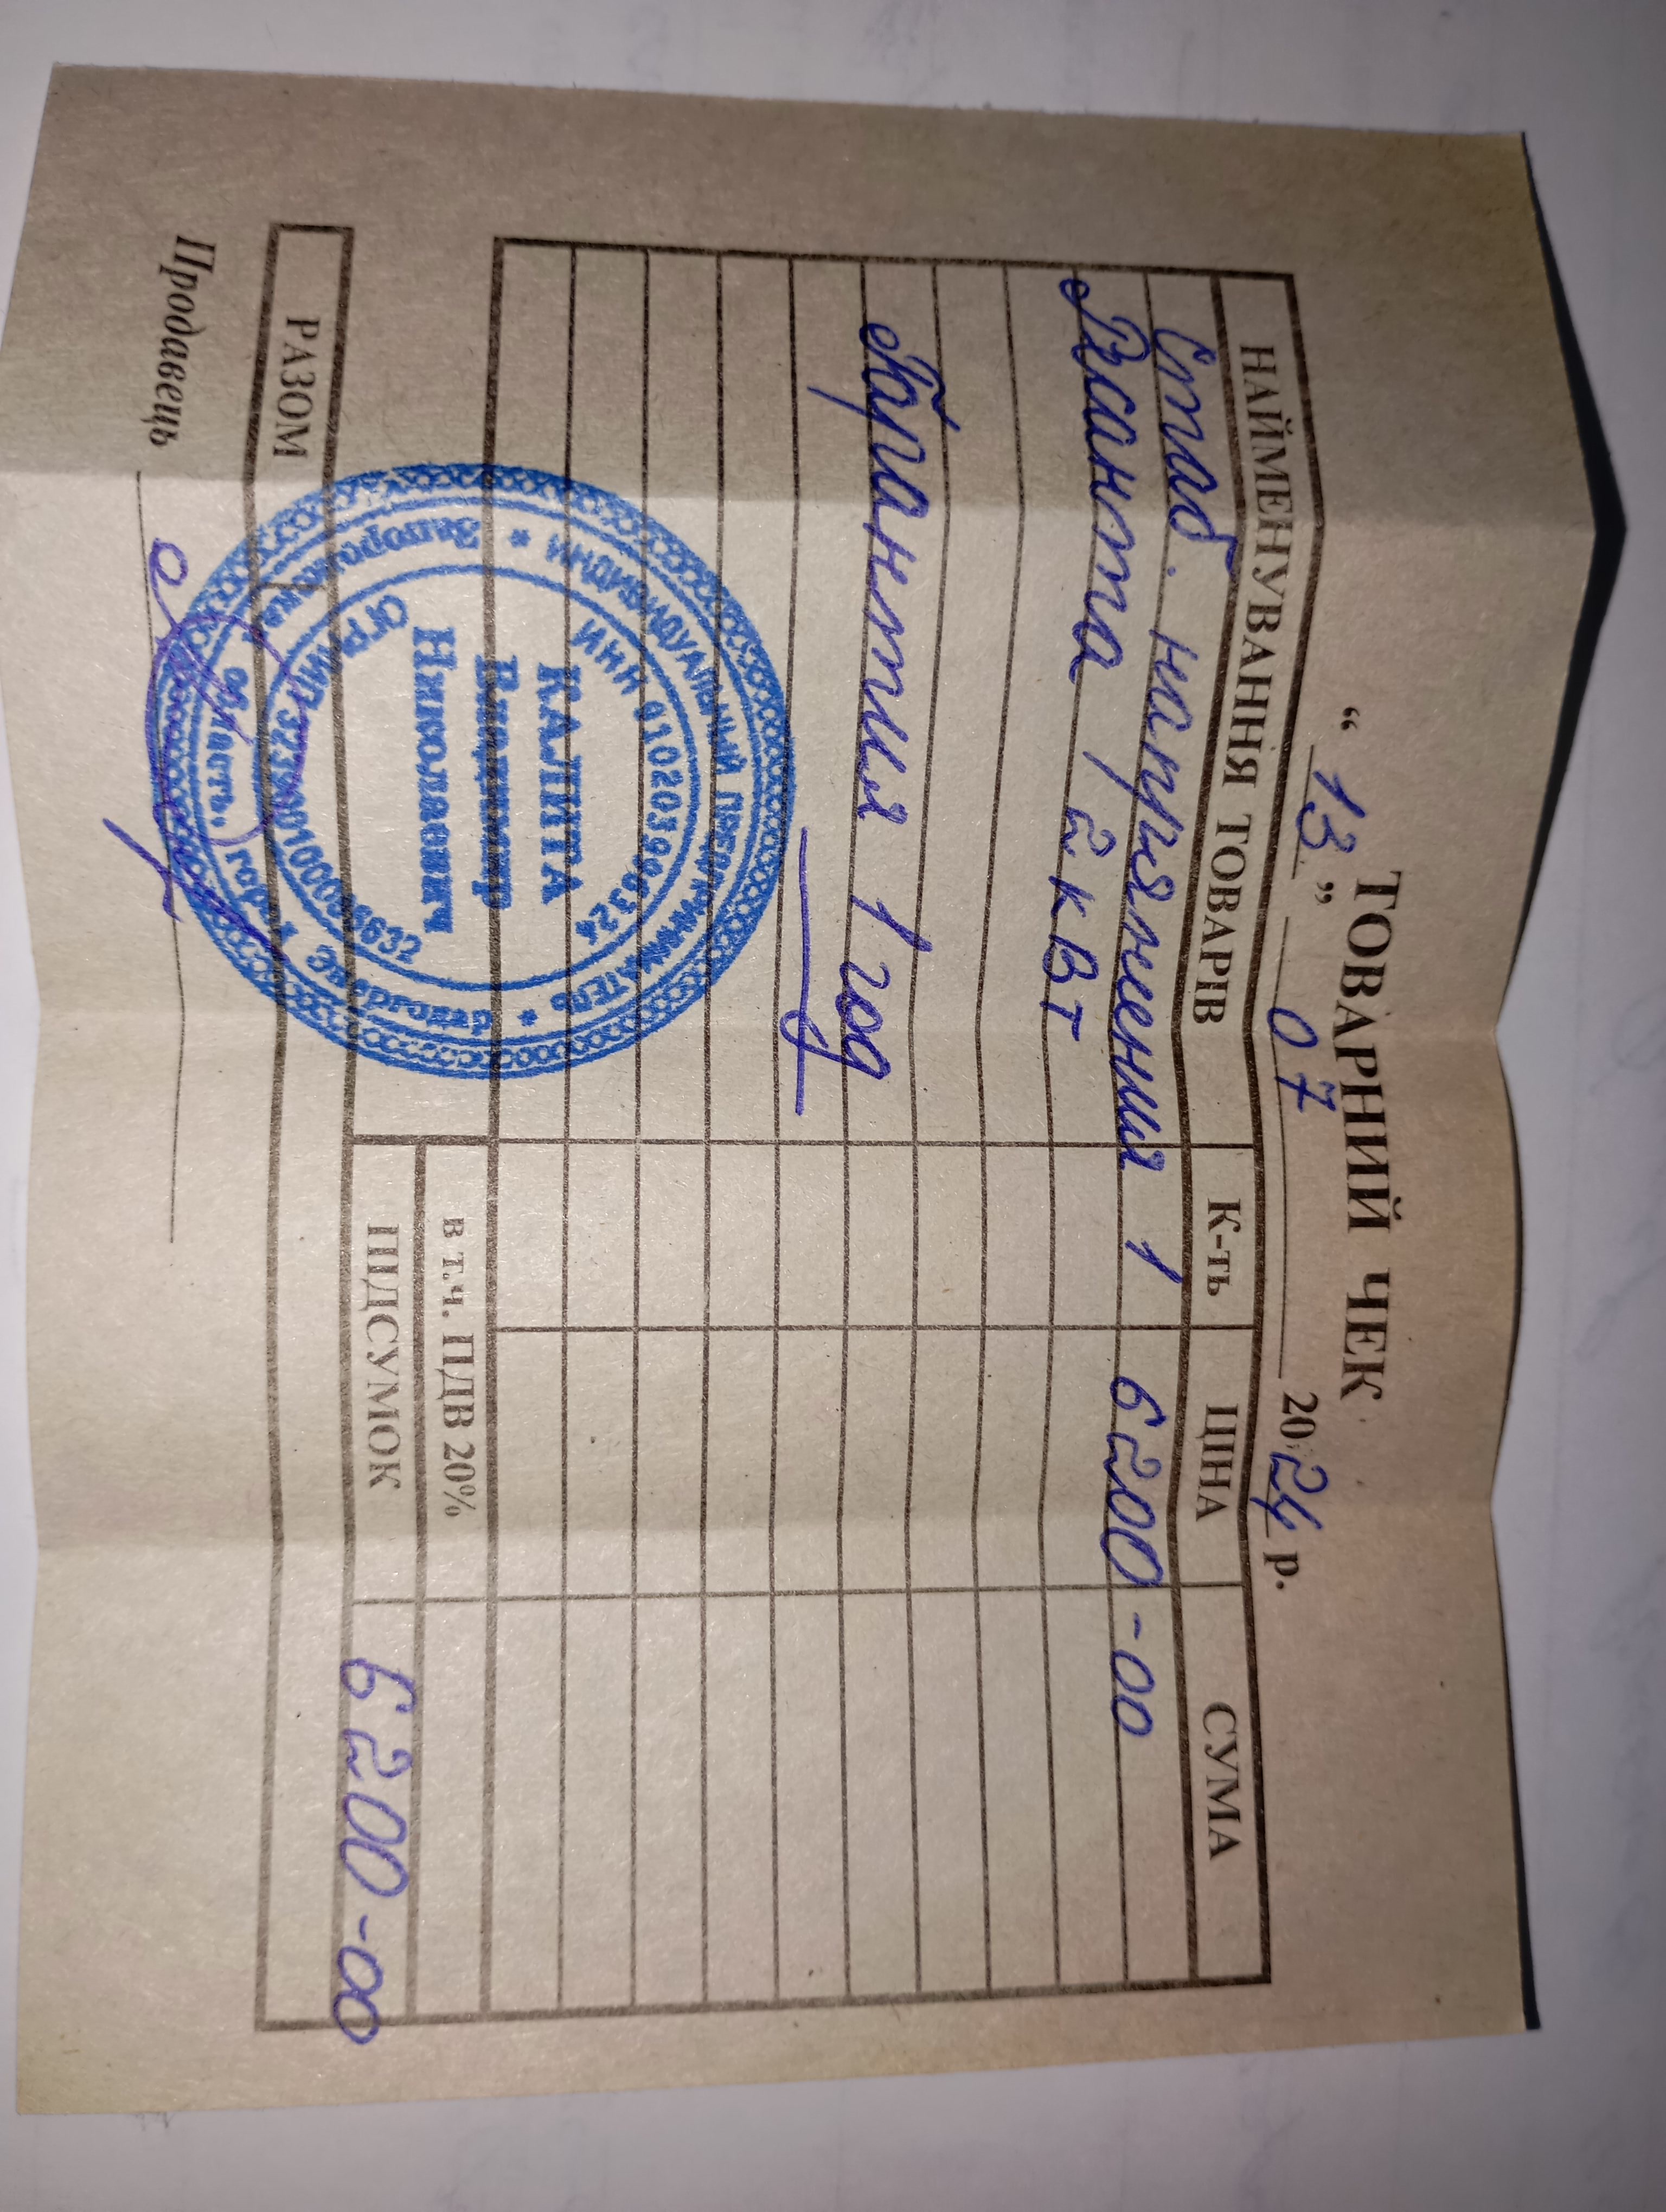 ТОВАРНИЙ ЧЕК
“ 13 ” 07 2024 р.
НАЙМЕНУВАННЯ ТОВАРІВ К-ть ЦІНА СУМА
Стаб. напряжения 1 6200-00
Ресанта 2 кВт
Гарантия 1 год
в т.ч. ПДВ 20%
ПІДСУМОК 6200-00
РАЗОМ
Продавець
* ИНДИВИДУАЛЬНЫЙ ПРЕДПРИНИМАТЕЛЬ *
Запорожская область, город Энергодар
ИНН
КАЛИТА
Владимир
Николаевич
ОГРНИП